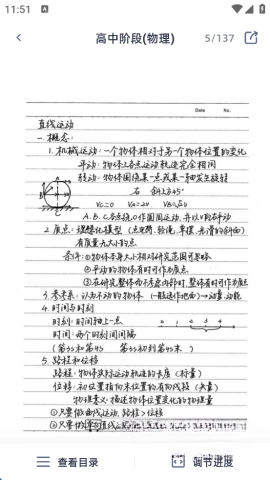 11:51
高中阶段(物理)
5/137
Date No.
直线运动
一.概念:
1.机械运动:一个物体相对于另一个物体位置的变化
平动:物体上各点运动轨迹完全相同
转动:物体围绕某一点或某一轴发生旋转
右 斜上45°
Vc=0 VA=2v VB=√2v
A.B.C各点绕O作圆周运动,并以v向右平动
2.质点:理想化模型(点电荷、轻绳、单摆、光滑的斜面)
有质量无大小的点
条件:①物体本身大小相对研究范围可忽略
②平动的物体有时可作为质点
③在研究整体而不考虑内部时,整体有时可作为质点
3.参考系:认为不动的物体(一般选作地面)→动量、动能
4.时间与时刻
时刻:时间轴上一点
0 1 2 3 4
时间:两个时刻间间隔
(第3s和第4s 第3s初到第4s末)
5.路程和位移
路程:物体实际运动轨迹的长度(标量)
位移:初位置指向末位置的有向线段(矢量)
物理意义:描述物体位置变化的物理量
①只要做曲线运动,路程>位移
②只要做单向直线运动
查看目录
调节进度